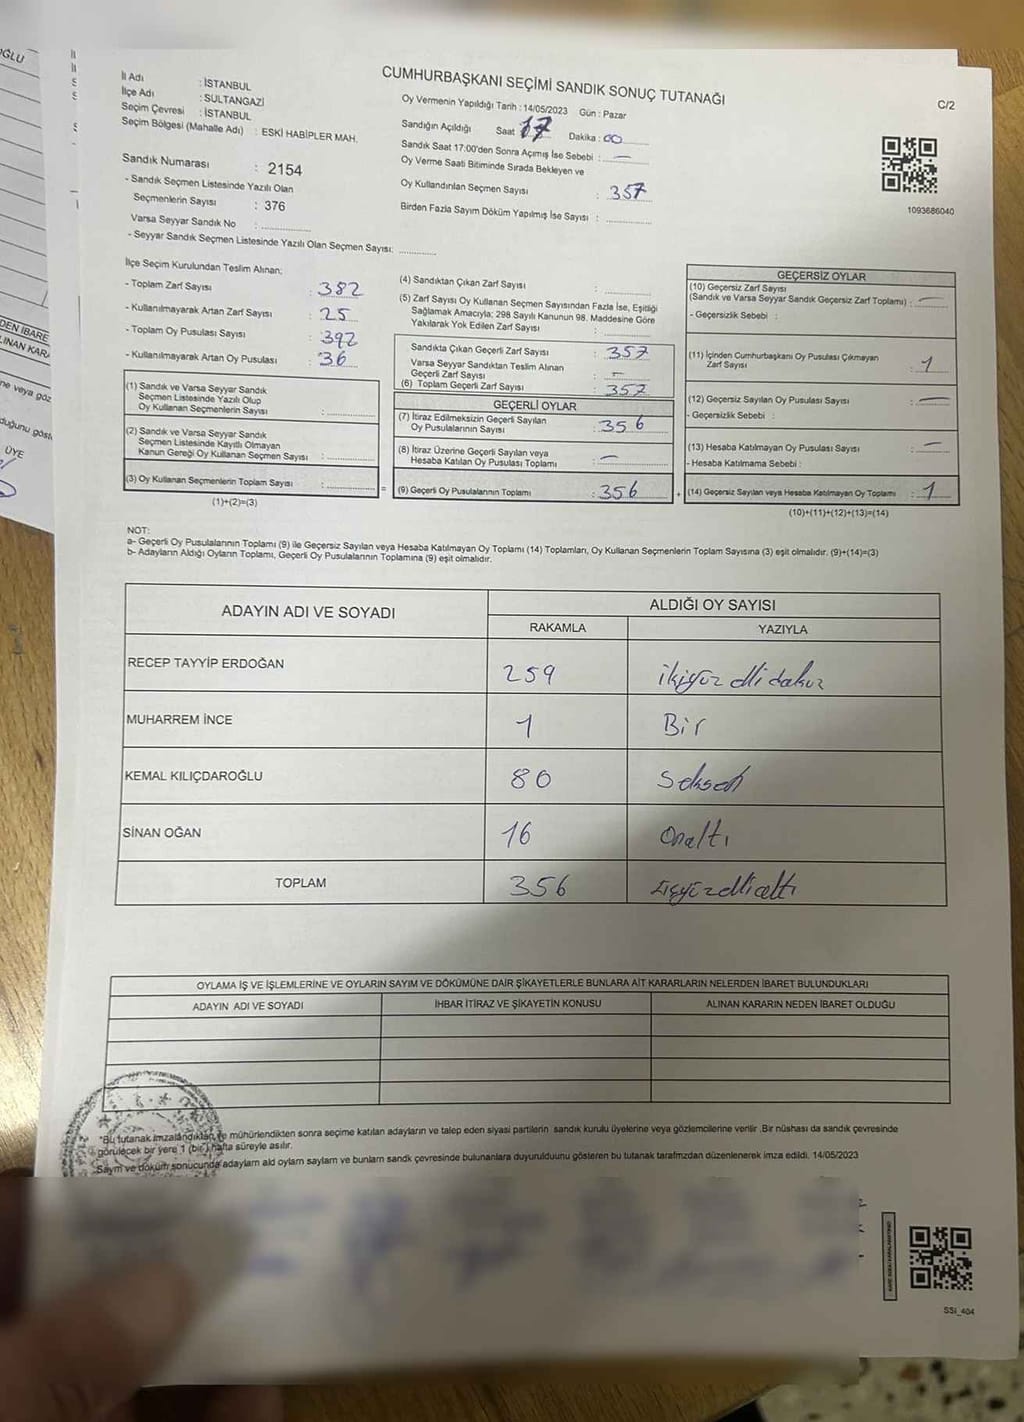 OĞLU
CUMHURBAŞKANI SEÇİMİ SANDIK SONUÇ TUTANAĞI
C/2
İl Adı : İSTANBUL
İlçe Adı : SULTANGAZİ
Seçim Çevresi : İSTANBUL
Seçim Bölgesi (Mahalle Adı) : ESKİ HABİPLER MAH.
Sandık Numarası : 2154
- Sandık Seçmen Listesinde Yazılı Olan
Seçmenlerin Sayısı : 376
Varsa Seyyar Sandık No :
- Seyyar Sandık Seçmen Listesinde Yazılı Olan Seçmen Sayısı:
Oy Vermenin Yapıldığı Tarih : 14/05/2023 Gün : Pazar
Sandığın Açıldığı Saat 17 Dakika : 00
Sandık Saat 17:00'den Sonra Açımış İse Sebebi : —
Oy Verme Saati Bitiminde Sırada Bekleyen ve
Oy Kullandırılan Seçmen Sayısı : 357
Birden Fazla Sayım Döküm Yapılmış İse Sayısı :
1093686040
İlçe Seçim Kurulundan Teslim Alınan;
- Toplam Zarf Sayısı : 382
- Kullanılmayarak Artan Zarf Sayısı : 25
- Toplam Oy Pusulası Sayısı : 392
- Kullanılmayarak Artan Oy Pusulası : 36
(1) Sandık ve Varsa Seyyar Sandık
Seçmen Listesinde Yazılı Olup
Oy Kullanan Seçmenlerin Sayısı :
(2) Sandık ve Varsa Seyyar Sandık
Seçmen Listesinde Kayıtlı Olmayan
Kanun Gereği Oy Kullanan Seçmen Sayısı :
(3) Oy Kullanan Seçmenlerin Toplam Sayısı :
(1)+(2)=(3)
(4) Sandıktan Çıkan Zarf Sayısı :
(5) Zarf Sayısı Oy Kullanan Seçmen Sayısından Fazla İse, Eşitliği
Sağlamak Amacıyla; 298 Sayılı Kanunun 98. Maddesine Göre
Yakılarak Yok Edilen Zarf Sayısı :
Sandıkta Çıkan Geçerli Zarf Sayısı : 357
Varsa Seyyar Sandıktan Teslim Alınan
Geçerli Zarf Sayısı : —
(6) Toplam Geçerli Zarf Sayısı : 357
GEÇERLİ OYLAR
(7) İtiraz Edilmeksizin Geçerli Sayılan
Oy Pusulalarının Sayısı : 356
(8) İtiraz Üzerine Geçerli Sayılan veya
Hesaba Katılan Oy Pusulası Toplamı : —
= (9) Geçerli Oy Pusulalarının Toplamı : 356
GEÇERSİZ OYLAR
(10) Geçersiz Zarf Sayısı
(Sandık ve Varsa Seyyar Sandık Geçersiz Zarf Toplamı) : —
- Geçersizlik Sebebi :
(11) İçinden Cumhurbaşkanı Oy Pusulası Çıkmayan
Zarf Sayısı : 1
(12) Geçersiz Sayılan Oy Pusulası Sayısı : —
- Geçersizlik Sebebi :
(13) Hesaba Katılmayan Oy Pusulası Sayısı : —
- Hesaba Katılmama Sebebi :
+ (14) Geçersiz Sayılan veya Hesaba Katılmayan Oy Toplamı : 1
(10)+(11)+(12)+(13)=(14)
NOT:
a- Geçerli Oy Pusulalarının Toplamı (9) ile Geçersiz Sayılan veya Hesaba Katılmayan Oy Toplamı (14) Toplamları, Oy Kullanan Seçmenlerin Toplam Sayısına (3) eşit olmalıdır. (9)+(14)=(3)
b- Adayların Aldığı Oyların Toplamı, Geçerli Oy Pusulalarının Toplamına (9) eşit olmalıdır.
ADAYIN ADI VE SOYADI ALDIĞI OY SAYISI
RAKAMLA YAZIYLA
RECEP TAYYİP ERDOĞAN 259 ikiyüz elli dokuz
MUHARREM İNCE 1 Bir
KEMAL KILIÇDAROĞLU 80 Seksen
SİNAN OĞAN 16 Onaltı
TOPLAM 356 üçyüzellialtı
OYLAMA İŞ VE İŞLEMLERİNE VE OYLARIN SAYIM VE DÖKÜMÜNE DAİR ŞİKAYETLERLE BUNLARA AİT KARARLARIN NELERDEN İBARET BULUNDUKLARI
ADAYIN ADI VE SOYADI İHBAR İTİRAZ VE ŞİKAYETİN KONUSU ALINAN KARARIN NEDEN İBARET OLDUĞU
"Bu tutanak imzalandıktan ve mühürlendikten sonra seçime katılan adayların ve talep eden siyasi partilerin sandık kurulu üyelerine veya gözlemcilerine verilir .Bir nüshası da sandık çevresinde
görülecek bir yere 1 (bir) hafta süreyle asılır.
Sayım ve döküm sonucunda adayların aldı oyların sayların ve bunların sandk çevresinde bulunanlara duyurulduunu gösteren bu tutanak tarafımzdan düzenlenerek imza edildi. 14/05/2023
SSİ_404
DEN İBARE
LINAN KAR
ne veya göz
duğunu göst
ÜYE